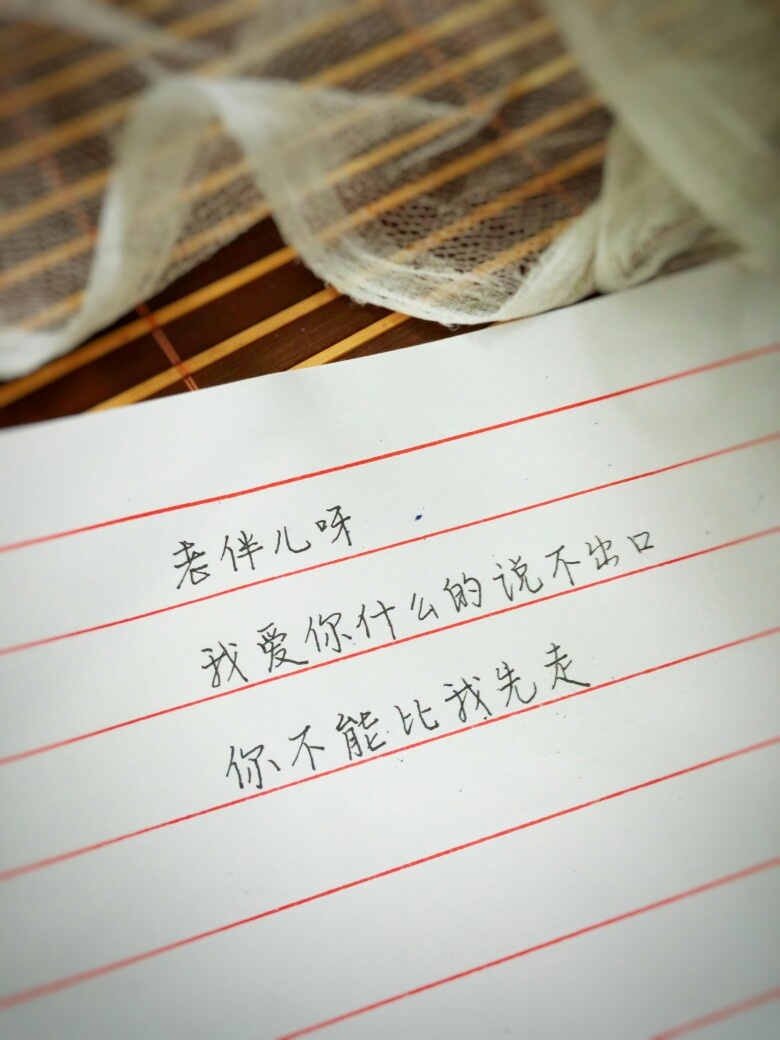 老伴儿呀
我爱你什么的说不出口
你不能比我先走